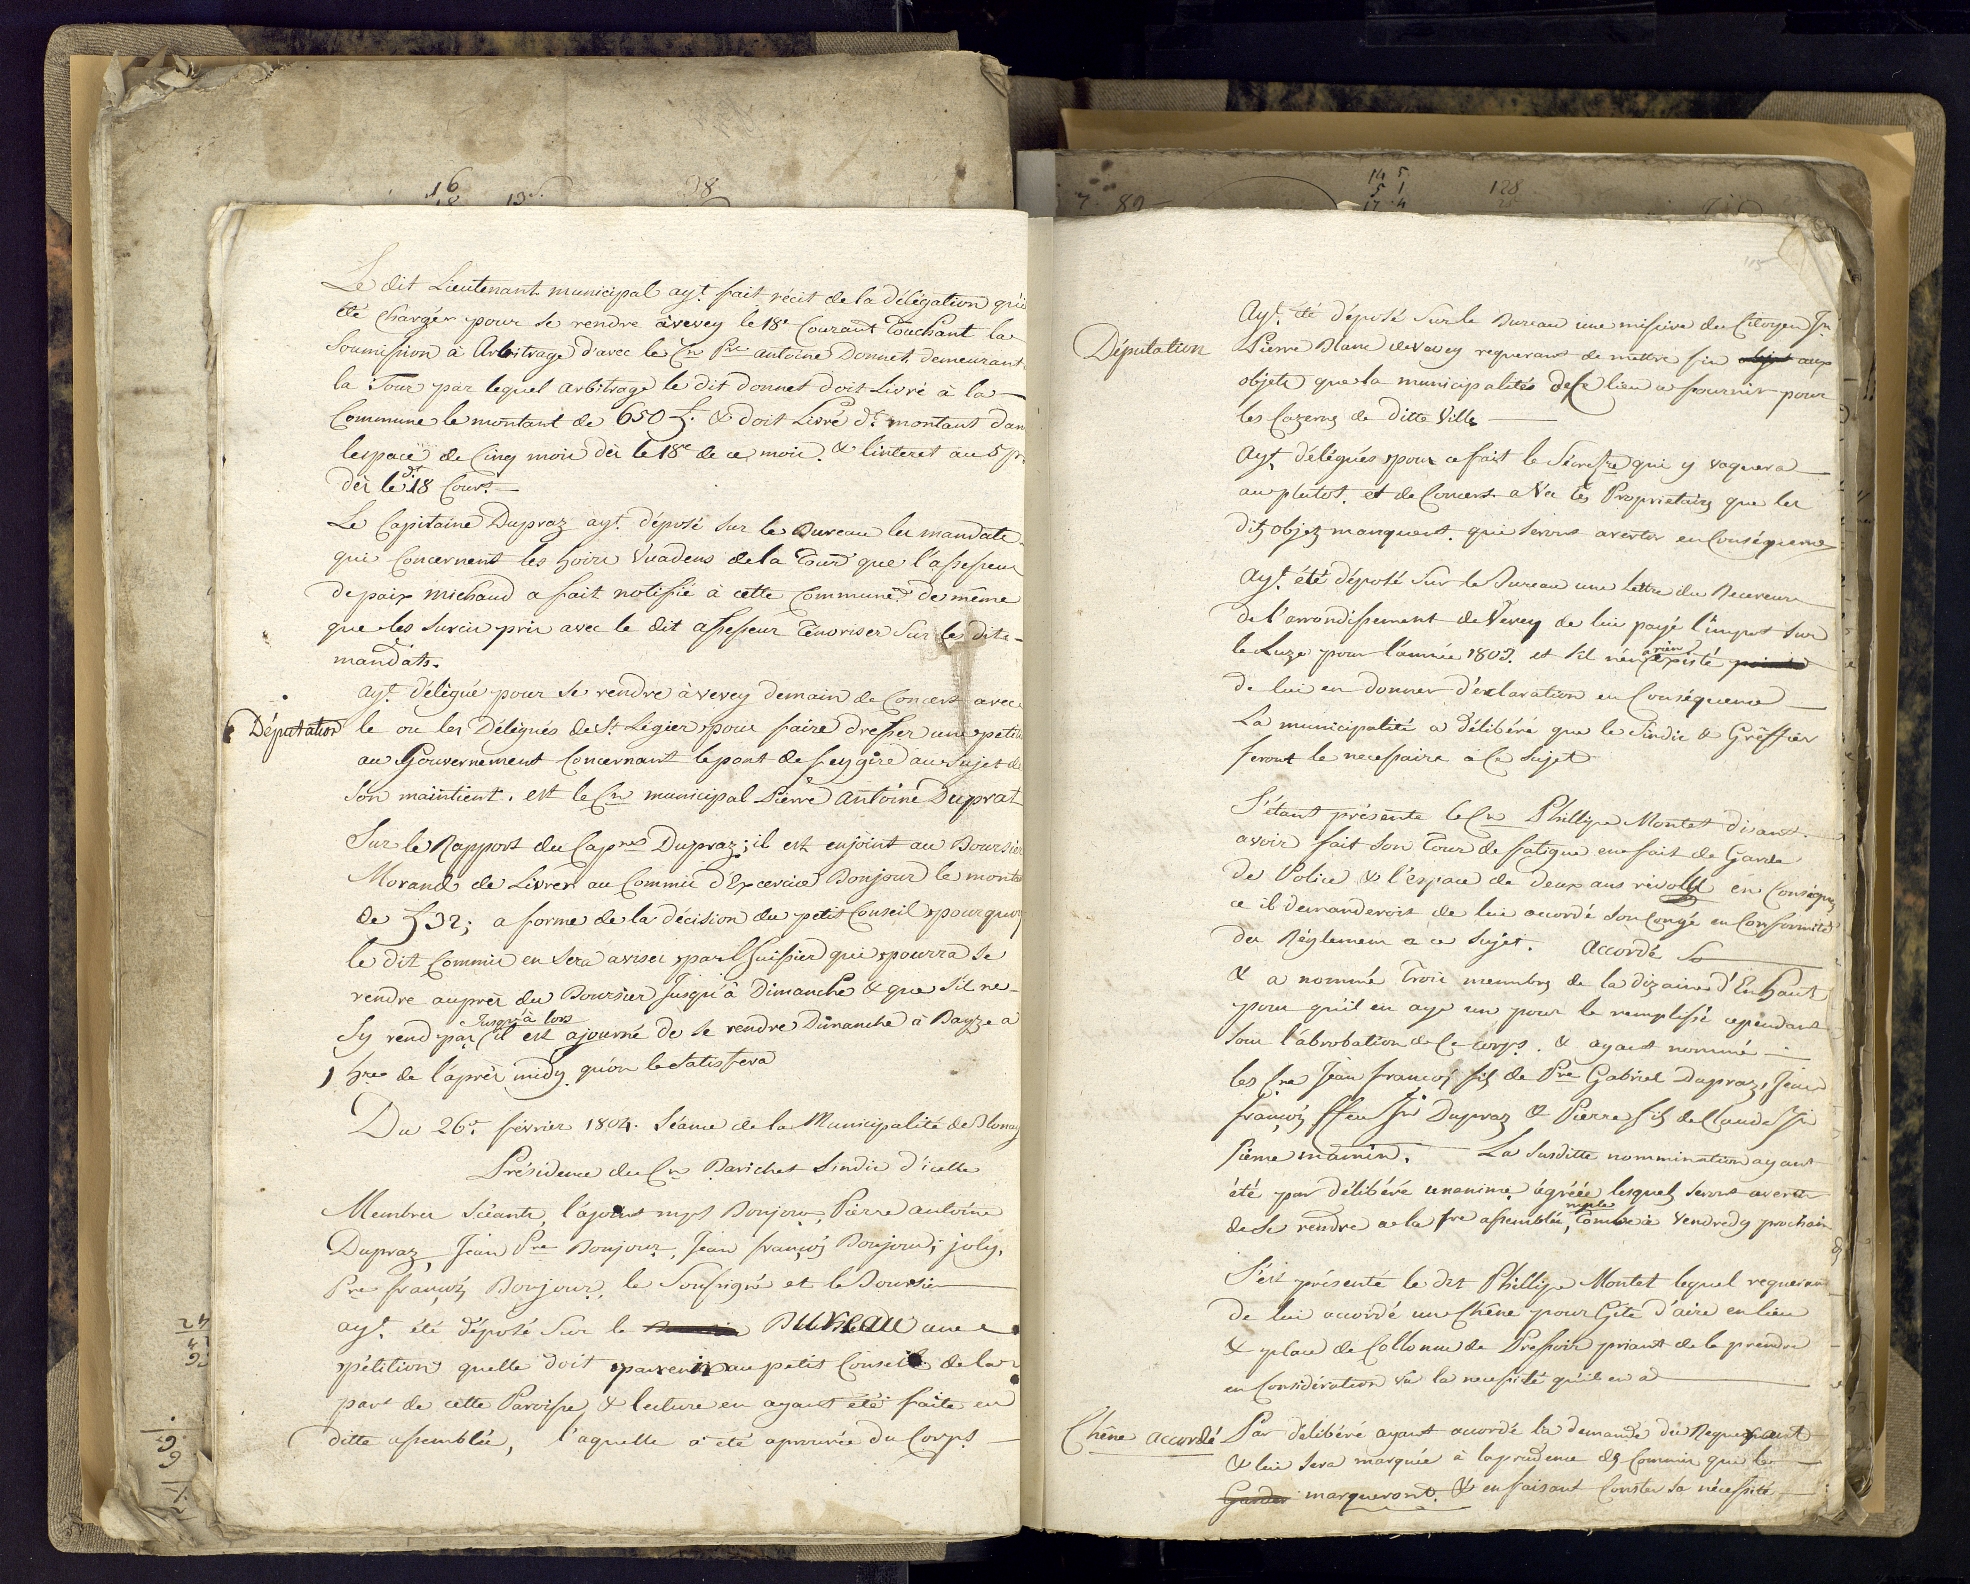 Le dit Lieutenant municipal ayt. fait récit de la délégation qu'il
été Chargér pour se rendre à vevey le 18e Courant Touchant la
Soumission à Arbitrage d'avec le Cn Pre antoine Donnet demeurant
la Tour par lequel arbitrage le dit donnet doit Livré à la
Commune le montant de 650 f. & doit Livré dt. montant dan
lespace de Cinq mois dès le 18e de ce mois. & linteret au 5 pr.
dès le dt. 18 Cours.
Le Capitaine Dupraz ayt. déposé sur le Bureau les mandats
qui Concernent les hoirs Vuadens de la Tour que l'assesseur
de paix michaud a fait notifié à cette Commune de même
que les Surcis pris avec le dit assesseur Ténoriser Sur le dits
mandats.
ayt. délégué pour se rendre à vevey demain de Concert avec
Députation le ou les Délégués de St. Légier pour faire dresser une petiti
au Gouvernement Concernant le pont de feygire au Sujet de
Son maintient. est le Cn municipal Pierre Antoine Duprat
Sur le Rapport du Capne Dupraz; il est enjoint au Boursier
Morand de Livrer au Commis d'Excercice Bonjour le monta
de f 32; a forme de la décision du petit Conseil pourquoy
le dit Commis en sera aviser par l'huissier qui pourra se
rendre auprès du Boursier Jusqu'à Dimanche & que s'il ne
Jusqu'à lors
Sy rend pas il est ajourné de se rendre Dimanche à Bayze a
1 hre de l'après midy qu'on le Satisfera
Du 26e. février 1804. Séance de la Municipalité de Blonay
Présidence du Cn Barichet Sindic d'icelle
Membres Séants, l'ajoint mpl Bonjour, Pierre antoine
Dupraz, Jean Pre Bonjour, Jean françois Bonjour; joly,
Pre françois Bonjour, le Soussigné et le Boursier
ayt. été déposé Sur le Bureau une
pétition quelle doit parvenir au petit Conseil de la
part de cette Paroisse & lecture en ayant été faite en
ditte assemblée, l'aquelle a été aprouvée du Corps
ayt. été déposé Sur le Bureau une missive du Citoyen Jn
Députation Pierre Blanc de Vevey requerant de mettre fin aux
objets que la municipalités de ce lieu a fournir pour
les Cazernes de ditte Ville
ayt. délégués pour ce fait le Sécretre qui y vaquera
au plutot. et de Concert a Vec les Proprietaires que les
dits objets manquent. qui seront avertis en Conséquence
ayt. été déposé Sur le Bureau une lettre du Receveur
de l'arrondissement de Vevey de lui payé l'impot Sur
le Luxe pour l'année 1803. et s'il n'en existé
de lui en donner déclaration en Conséquence
La municipalité a délibéré que le Sindic & Gréffier
feront le necessaire à Ce Sujet
S'étant présenté le Cn Phillipe Montet disant
avoir fait Son Tour de fatigue en fait de Garde
de Police & l'espace de deux ans révolu en Conséquen
ce il demanderoit de lui accordé Son Congé en Conformité
des Réglemens a ce Sujet. accordé
& a nommé Trois membres de la dizaine d'En haut
pour qu'il en aye un pour le remplissé cependant
Sous l'abrobation de Ce corps. & ayant nommé
les Cns Jean françois fils de Pre Gabriel Dupraz, Jean
françois ffeu Jn Dupraz & Pierre fils de Claude Jn
Pierre mamin. La Susditte nommination ayant
été par délibéré unanime agréée lesquels seront avertis
de Se rendre a la pre assemblée, Tombée à Vendredy prochain
S'est présenté le dit Phillipe Montet lequel requerant
de lui accordé un Chêne pour Gite d'aire en lieu
& place de Collonne de Pressoir priant de le prendre
en Considération Vû la necessité qu'il en a
Chêne accordé Par délibéré ayant accordé la demande du Requerant
& lui sera marquée à la prudence des Commis qui le
Gardes marqueront. & en faisant Conster sa nécessité